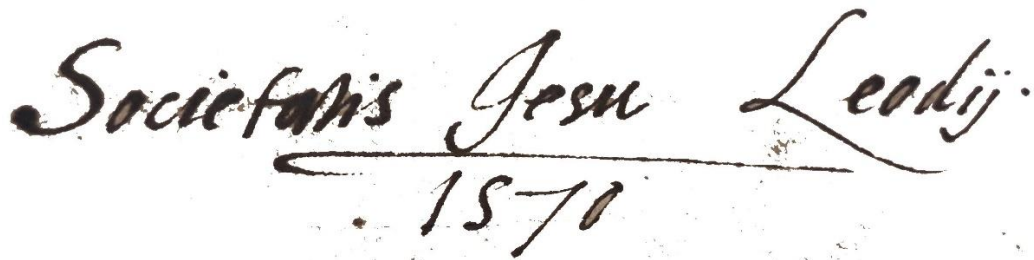 Societatis Jesu Leodij.
1570